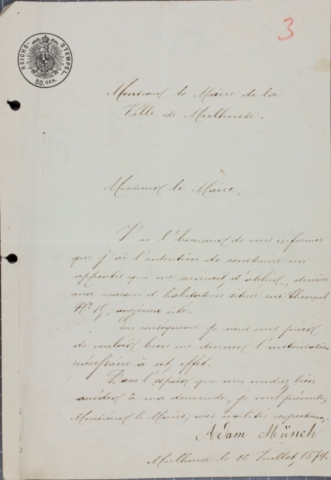 3
REICHS-STEMPEL
50 GEN.
Monsieur le Maire de la
Ville de Mulhouse.
Monsieur le Maire,
J'ai l'honneur de vous informer
que j'ai l'intention de construire un
appentis qui me servirait d'atelier, derrière
ma maison d'habitation située rue
No 15, ancienne cité.
En conséquence je vous prie
de vouloir bien me donner l'autorisation
nécéssaire à cet effet.
Dans l'espoir que vous voudrez bien
accéder à ma demande, je vous présente,
Monsieur le Maire, mes
Adam Münch
Mulhouse le 16 Juillet 1874.